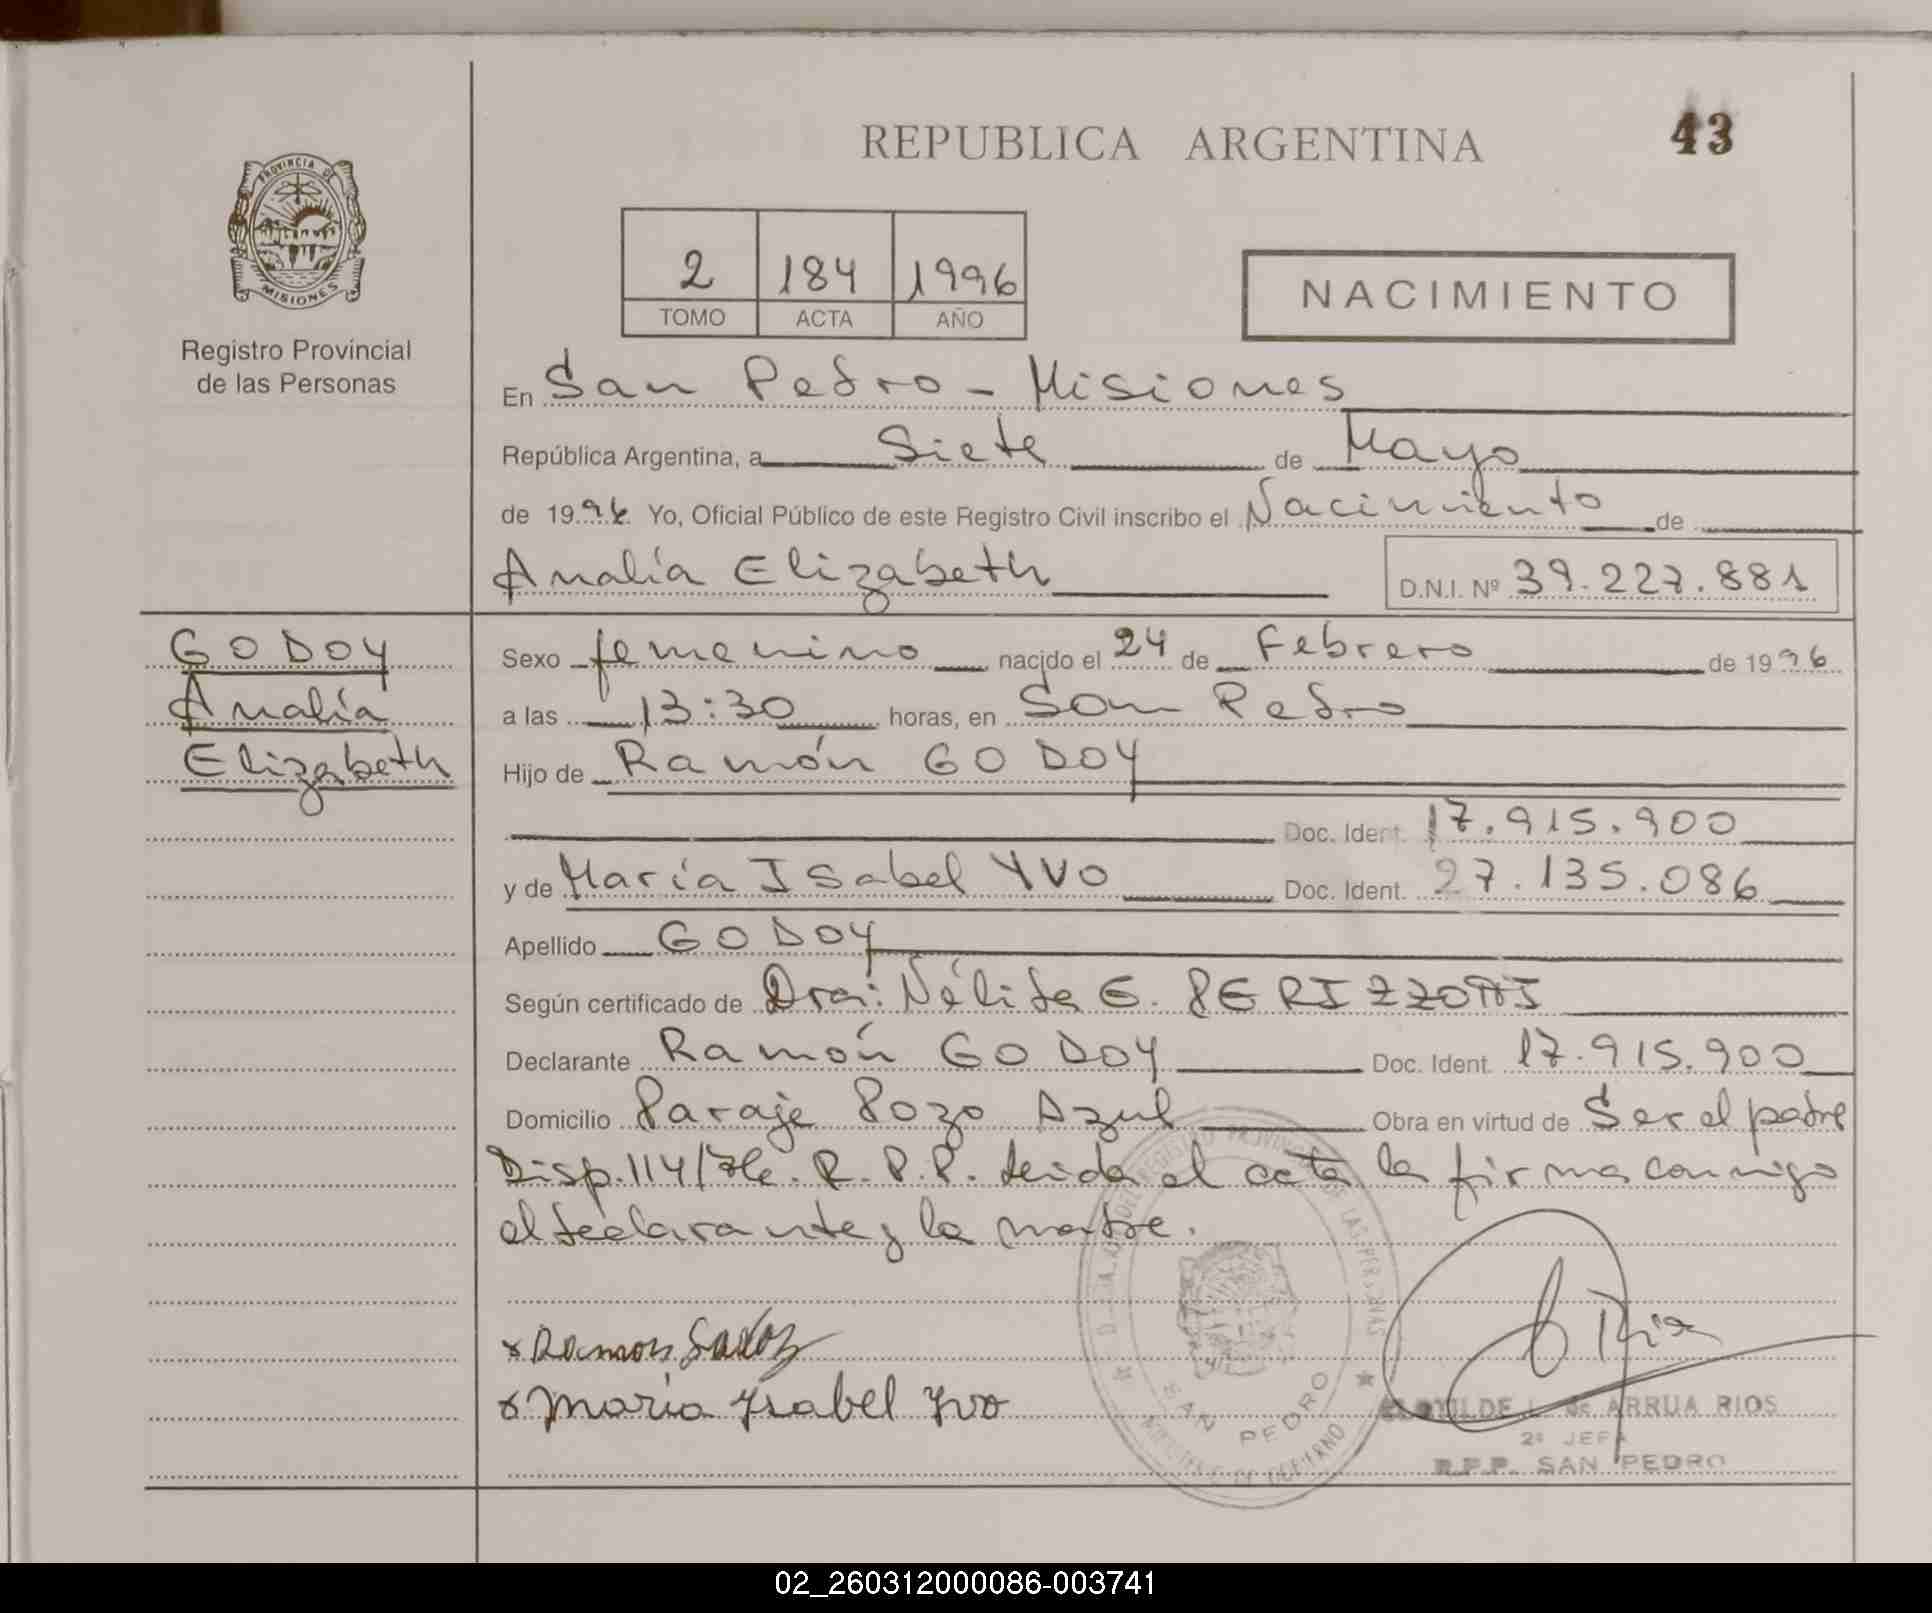 REPUBLICA ARGENTINA
43
PROVINCIA DE
MISIONES
Registro Provincial
de las Personas
2 184 1996
TOMO ACTA AÑO
NACIMIENTO
En San Pedro - Misiones
República Argentina, a Siete de Mayo
de 1996 Yo, Oficial Público de este Registro Civil inscribo el Nacimiento de
Analía Elizabeth D.N.I. Nº 39.227.881
GODOY
Analía
Elizabeth
Sexo femenino nacido el 24 de Febrero de 1996
a las 13:30 horas, en San Pedro
Hijo de Ramón GODOY
Doc. Ident. 17.915.900
y de María Isabel YVO Doc. Ident. 27.135.086
Apellido GODOY
Según certificado de Dra: Nélida E. PERIZZOTTI
Declarante Ramón GODOY Doc. Ident. 17.915.900
Domicilio Paraje Pozo Azul Obra en virtud de Ser el padre
Disp. 114/ R.P.P. leida el acta la firma conmigo
el declarante y la madre.
x Ramon
x Maria Ysabel Yvo
REGISTRO PROVINCIAL DE LAS PERSONAS
SAN PEDRO
MINISTERIO DE GOBIERNO
CLOTILDE L. de ARRUA RIOS
2º JEFA
R.P.P. SAN PEDRO
02_260312000086-003741